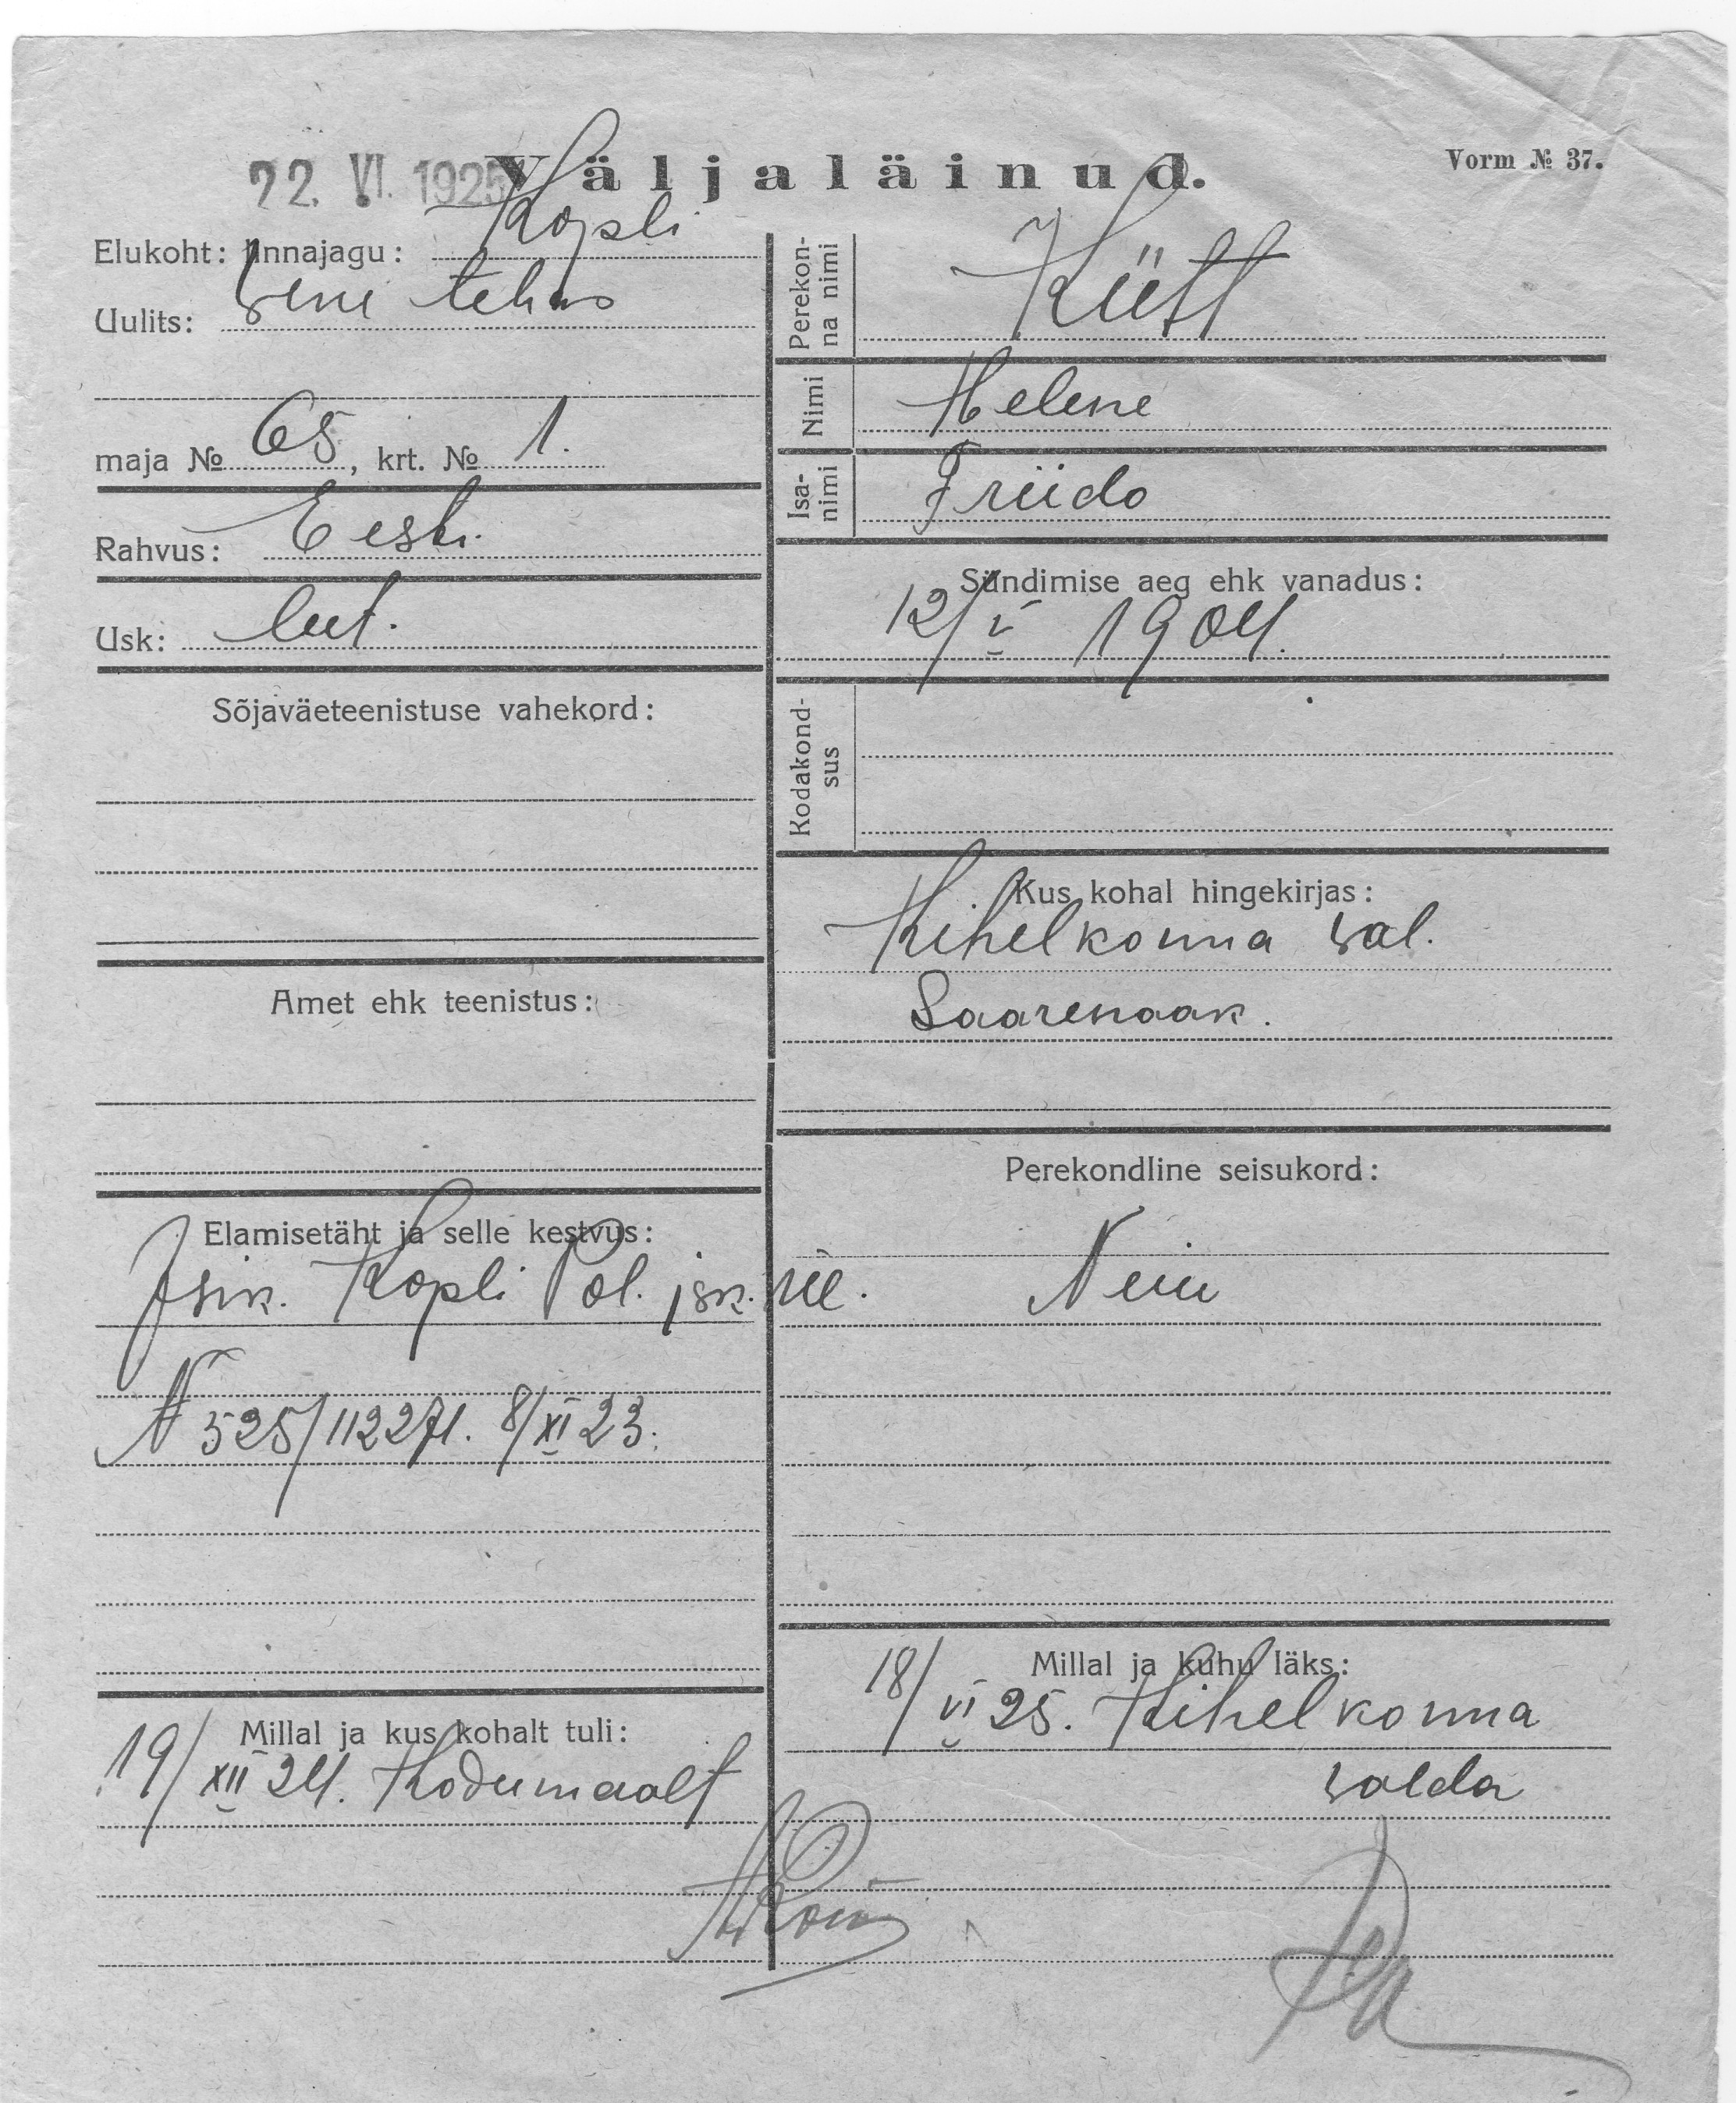 22. VI. 1925
Väljaläinud.
Vorm № 37.
Elukoht: linnajagu: Kopli
Uulits: Vene tehas
maja № 65, krt. № 1.
Rahvus: Eesti.
Usk: lut.
Sõjaväeteenistuse vahekord:
Amet ehk teenistus:
Elamisetäht ja selle kestvus:
Isik. Kopli Pol. jsk. ül.
N 525/112271. 8/XI 23.
Millal ja kus kohalt tuli:
19/XII 24. Kodumaalt
Perekon-
na nimi
Kütt
Nimi Helene
Isa-
nimi
Friido
Sündimise aeg ehk vanadus:
12/V 1904.
Kodakond-
sus
Kus kohal hingekirjas:
Kihelkonna val.
Saaremaak.
Perekondline seisukord:
Neiu
Millal ja kuhu läks:
18/VI 25. Kihelkonna
valda